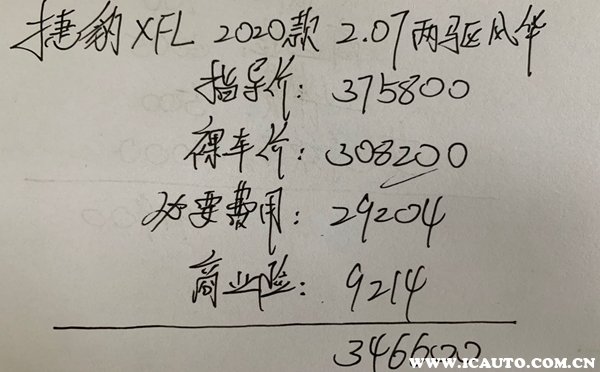 捷豹XFL 2020款 2.0T两驱风华
指导价: 375800
裸车价: 308200
必要费用: 29204
商业险: 9214
346600
WWW.ICAUTO.COM.CN